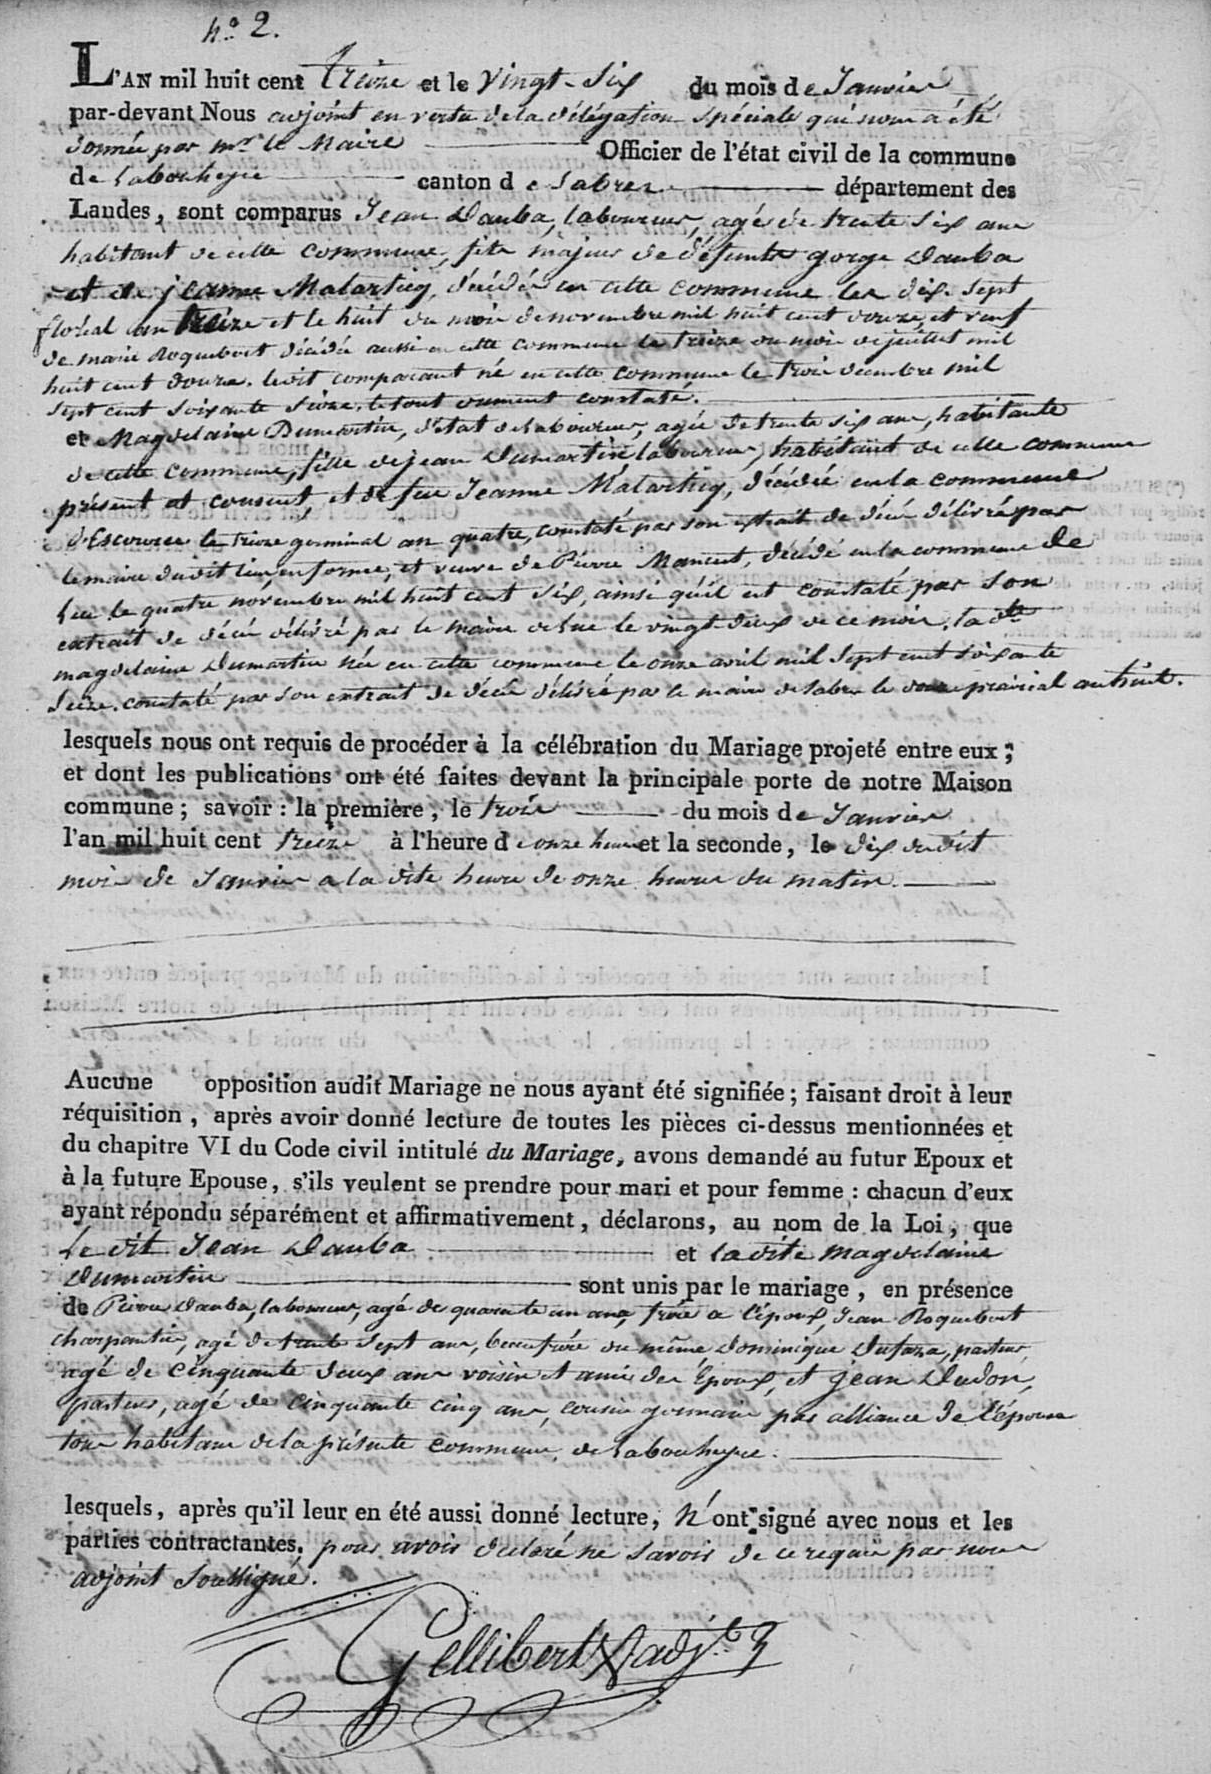 n.o 2.
L'AN mil huit cent treize et le vingt-six du mois de Janvier
par-devant Nous adjoint en vertu de la délégation spéciale qui nous a été
donnée par mr. le Maire Officier de l'état civil de la commune
de Labouheyre canton de Sabres département des
Landes, sont comparus Jean Dauba, laboureur, agé de trente six ans
habitant de cette commune, fils majeur de défunts gorge Dauba
et de jeanne Matarticq, décédés en cette commune les dix-sept
floréal an treize et le huit du mois de novembre mil huit cent douze, et veuf
de marie Roquebert décédée aussi en cette commune le treize du mois de juillet mil
huit cent douze. ledit comparant né en cette commune le trois décembre mil
sept cent soixante seize. le tout dument constaté.
et Magdelaine Dumartin, d'état de laboureur, agée de trente six ans, habitante
de cette commune, fille de jean Dumartin laboureur, habitant de cette commune
présent et consent, et de feue Jeanne Matarticq, décédée en la commune
d'Escource le treize germinal an quatre, constaté par son extrait de décé délivré par
le maire dudit lieu en forme, et veuve de Pierre Manent, décédé en la commune de
Lue le quatre novembre mil huit cent six, ainsi qu'il est constaté par son
extrait de décé délivré par le maire de Lue le vingt-deux de ce mois, la dte
magdelaine Dumartin née en cette commune le onze avril mil sept cent soixante
seize. constaté par son extrait de décé délivré par le maire de Sabres le douze prairial an huit.
lesquels nous ont requis de procéder à la célébration du Mariage projeté entre eux;
et dont les publications ont été faites devant la principale porte de notre Maison
commune; savoir: la première, le trois du mois de Janvier
l'an mil huit cent treize à l'heure de onze heures et la seconde, le dix dudit
mois de Janvier a la dite heure de onze heures du matin.
Aucune opposition audit Mariage ne nous ayant été signifiée; faisant droit à leur
réquisition, après avoir donné lecture de toutes les pièces ci-dessus mentionnées et
du chapitre VI du Code civil intitulé du Mariage, avons demandé au futur Epoux et
à la future Epouse, s'ils veulent se prendre pour mari et pour femme: chacun d'eux
ayant répondu séparément et affirmativement, déclarons, au nom de la Loi, que
Le dit Jean Dauba et la dite magdelaine
Dumartin sont unis par le mariage, en présence
de Pierre Dauba, laboureur, agé de quarante un ans, frère a l'époux, Jean Roquebert
charpentier, agé de trente sept ans, beau frère du même, Dominique Dufaza, pasteur,
agé de cinquante deux ans voisin et amis des Epoux, et Jean Dudon,
pasteur, agé de cinquante cinq ans, cousin germain par alliance de l'épouse
tous habitans de la présente commune de Labouheyre.
lesquels, après qu'il leur en été aussi donné lecture, n'ont signé avec nous et les
parties contractantes. pour avoir declaré ne savoir de ce requis par nous
adjoint soussigné.
Gellibert adjt.